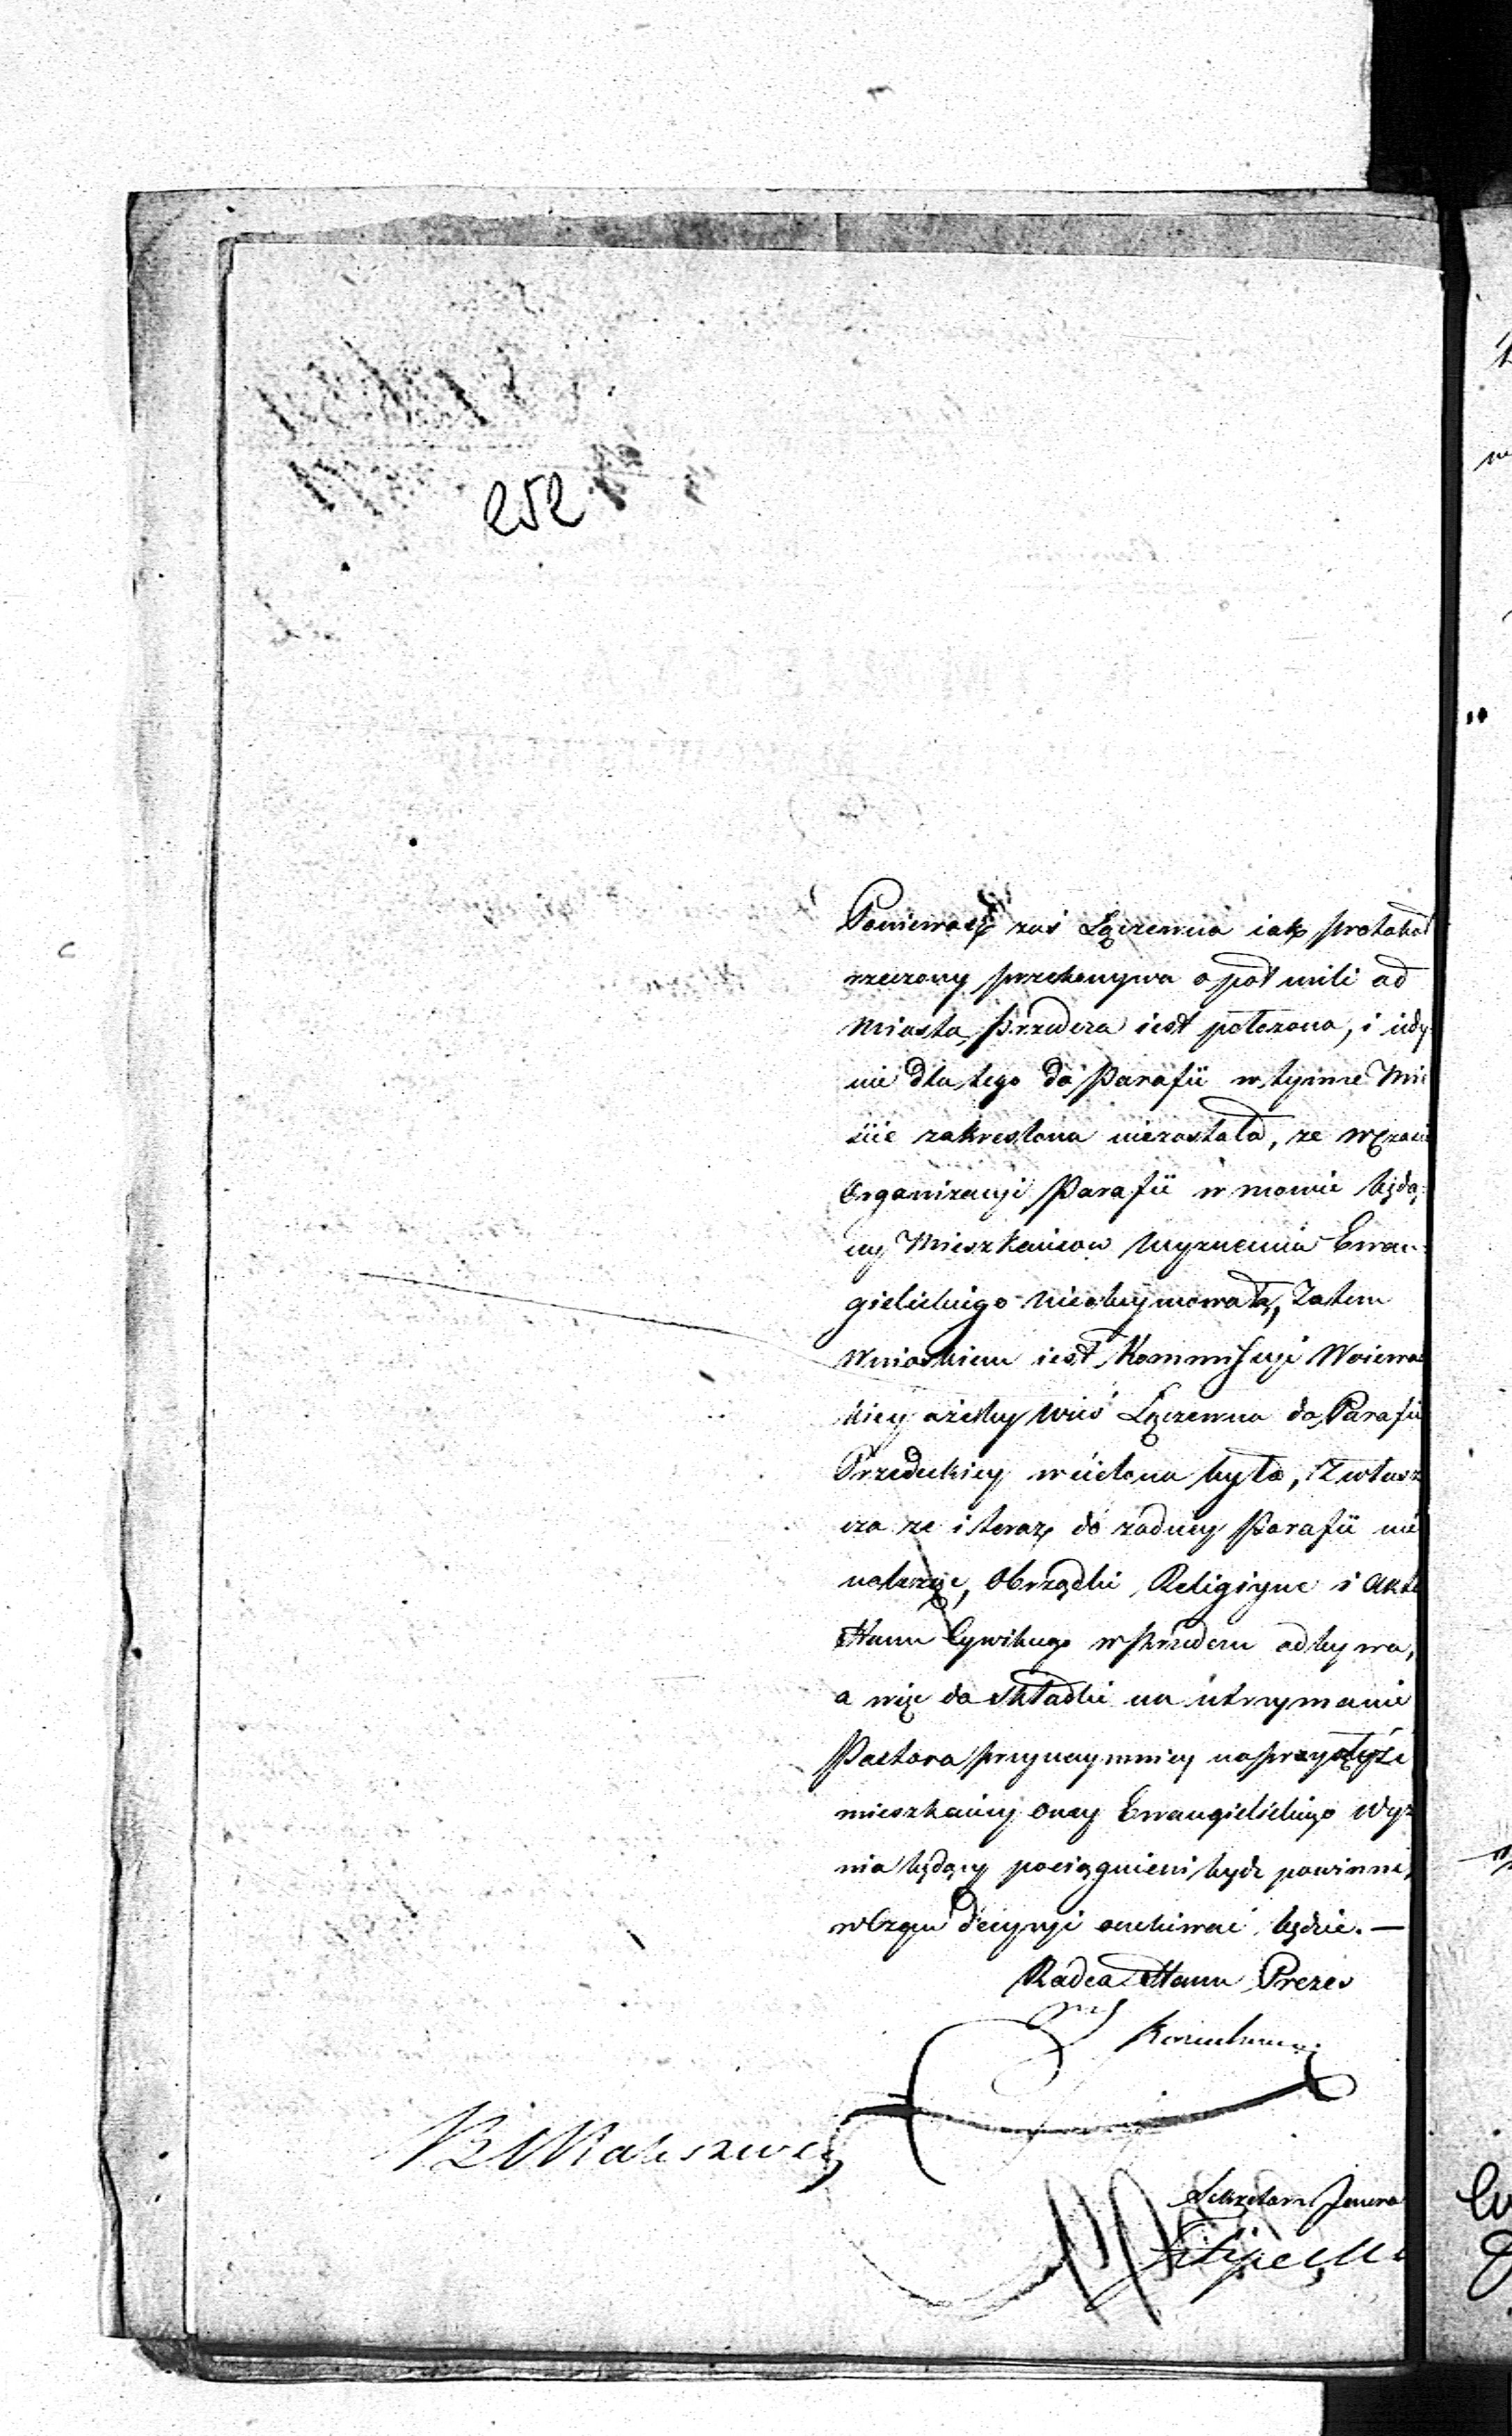 252
Ponieważ zaś Łączewna iak protokoł
rzeczony przekonywa o poł mili od
Miasta Przedcza iest położona, i iedy-
nie dla tego do Parafii w tymże Mie
ście zakreslona niezostała, ze w czasie
Organizacyi Parafii w mowie będą-
cey Mieszkańcow Wyznania Ewan-
gielickiego nieobeymowała, Zatem
Wnioskiem iest Kommissyi Woiewo
kiey ażeby Wieś Łączewna do Parafii
Przedeckiey wcielona była, Zwłasz
cza ze i teraz do zadney Parafii nie
należąc, Obrządki Religiyne i Akta
Stanu Cywilnego w Przedczu odbywa,
a więc do składki na utrzymanie
Pastora przynaymniey na przyszłość
mieszkańcy oney Ewangielickiego Wyz
nia będący pociągnieni bydź powinni,
w czym decyzyi oczekiwać będzie. —
Radca Stanu Prezes
Sekretarz Jenera